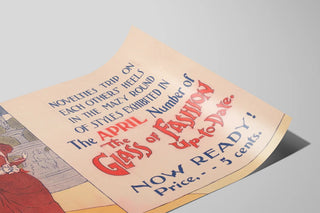 NOVELTIES TRIP ON
EACH OTHERS' HEELS
IN THE MAZY ROUND
OF STYLES EXHIBITED IN
The APRIL Number of
The
GLASS OF FASHION
Up-to-Date.
NOW READY!
Price, - - 5 cents.